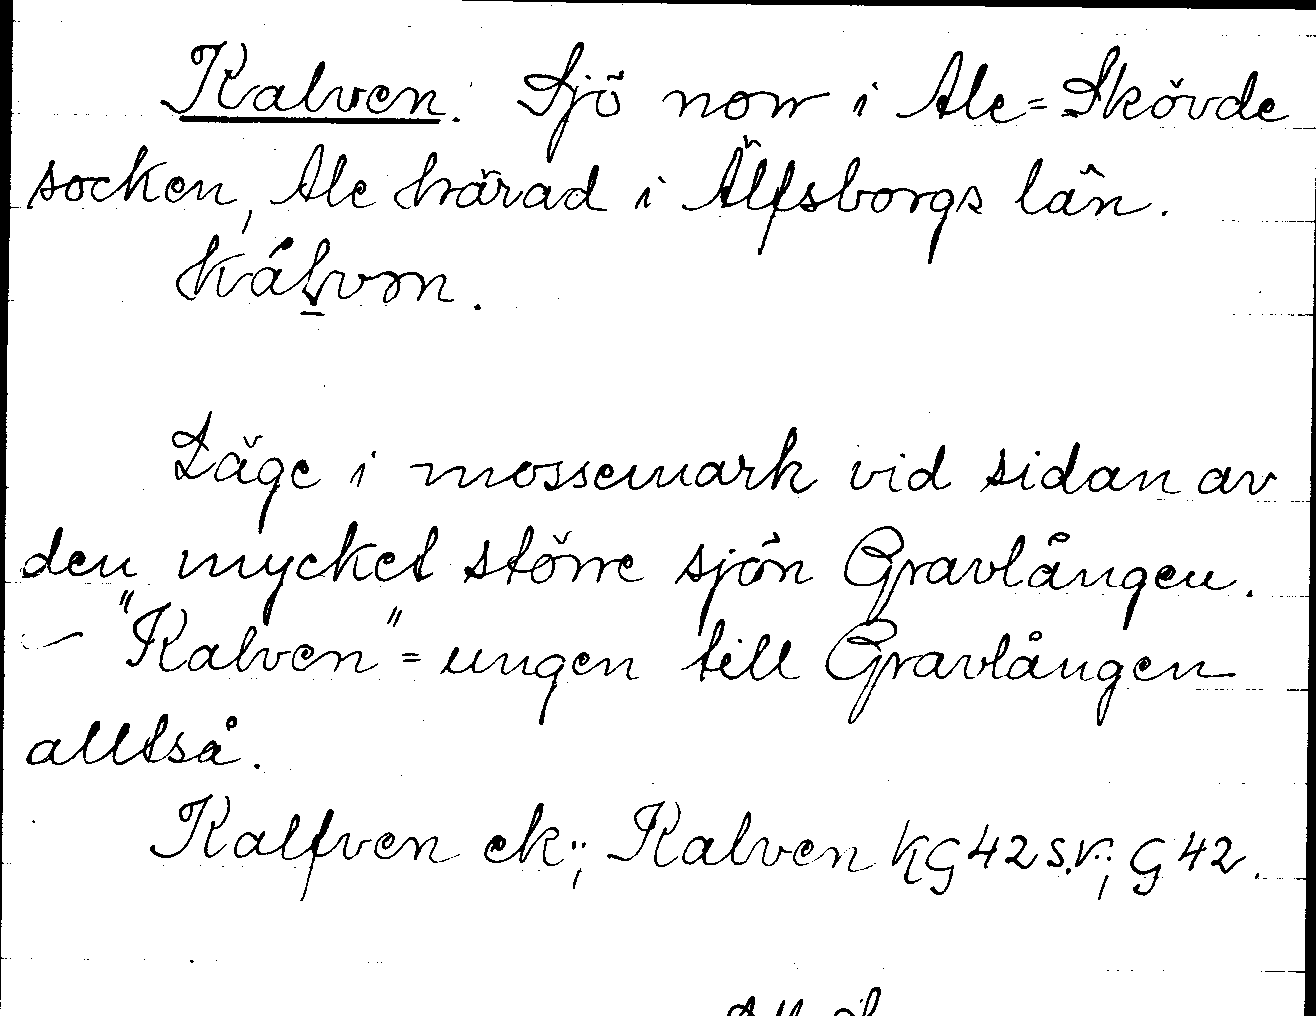 Kalven. Sjö norr i Ale=Skövde
socken, Ale härad i Älfsborgs län.
Läge i mossemark vid sidan av
den mycket större sjön Gravlången.
– "Kalven" = ungen till Gravlången
alltså.
Kalfven ek.; Kalven KG42 s.v.; G42.